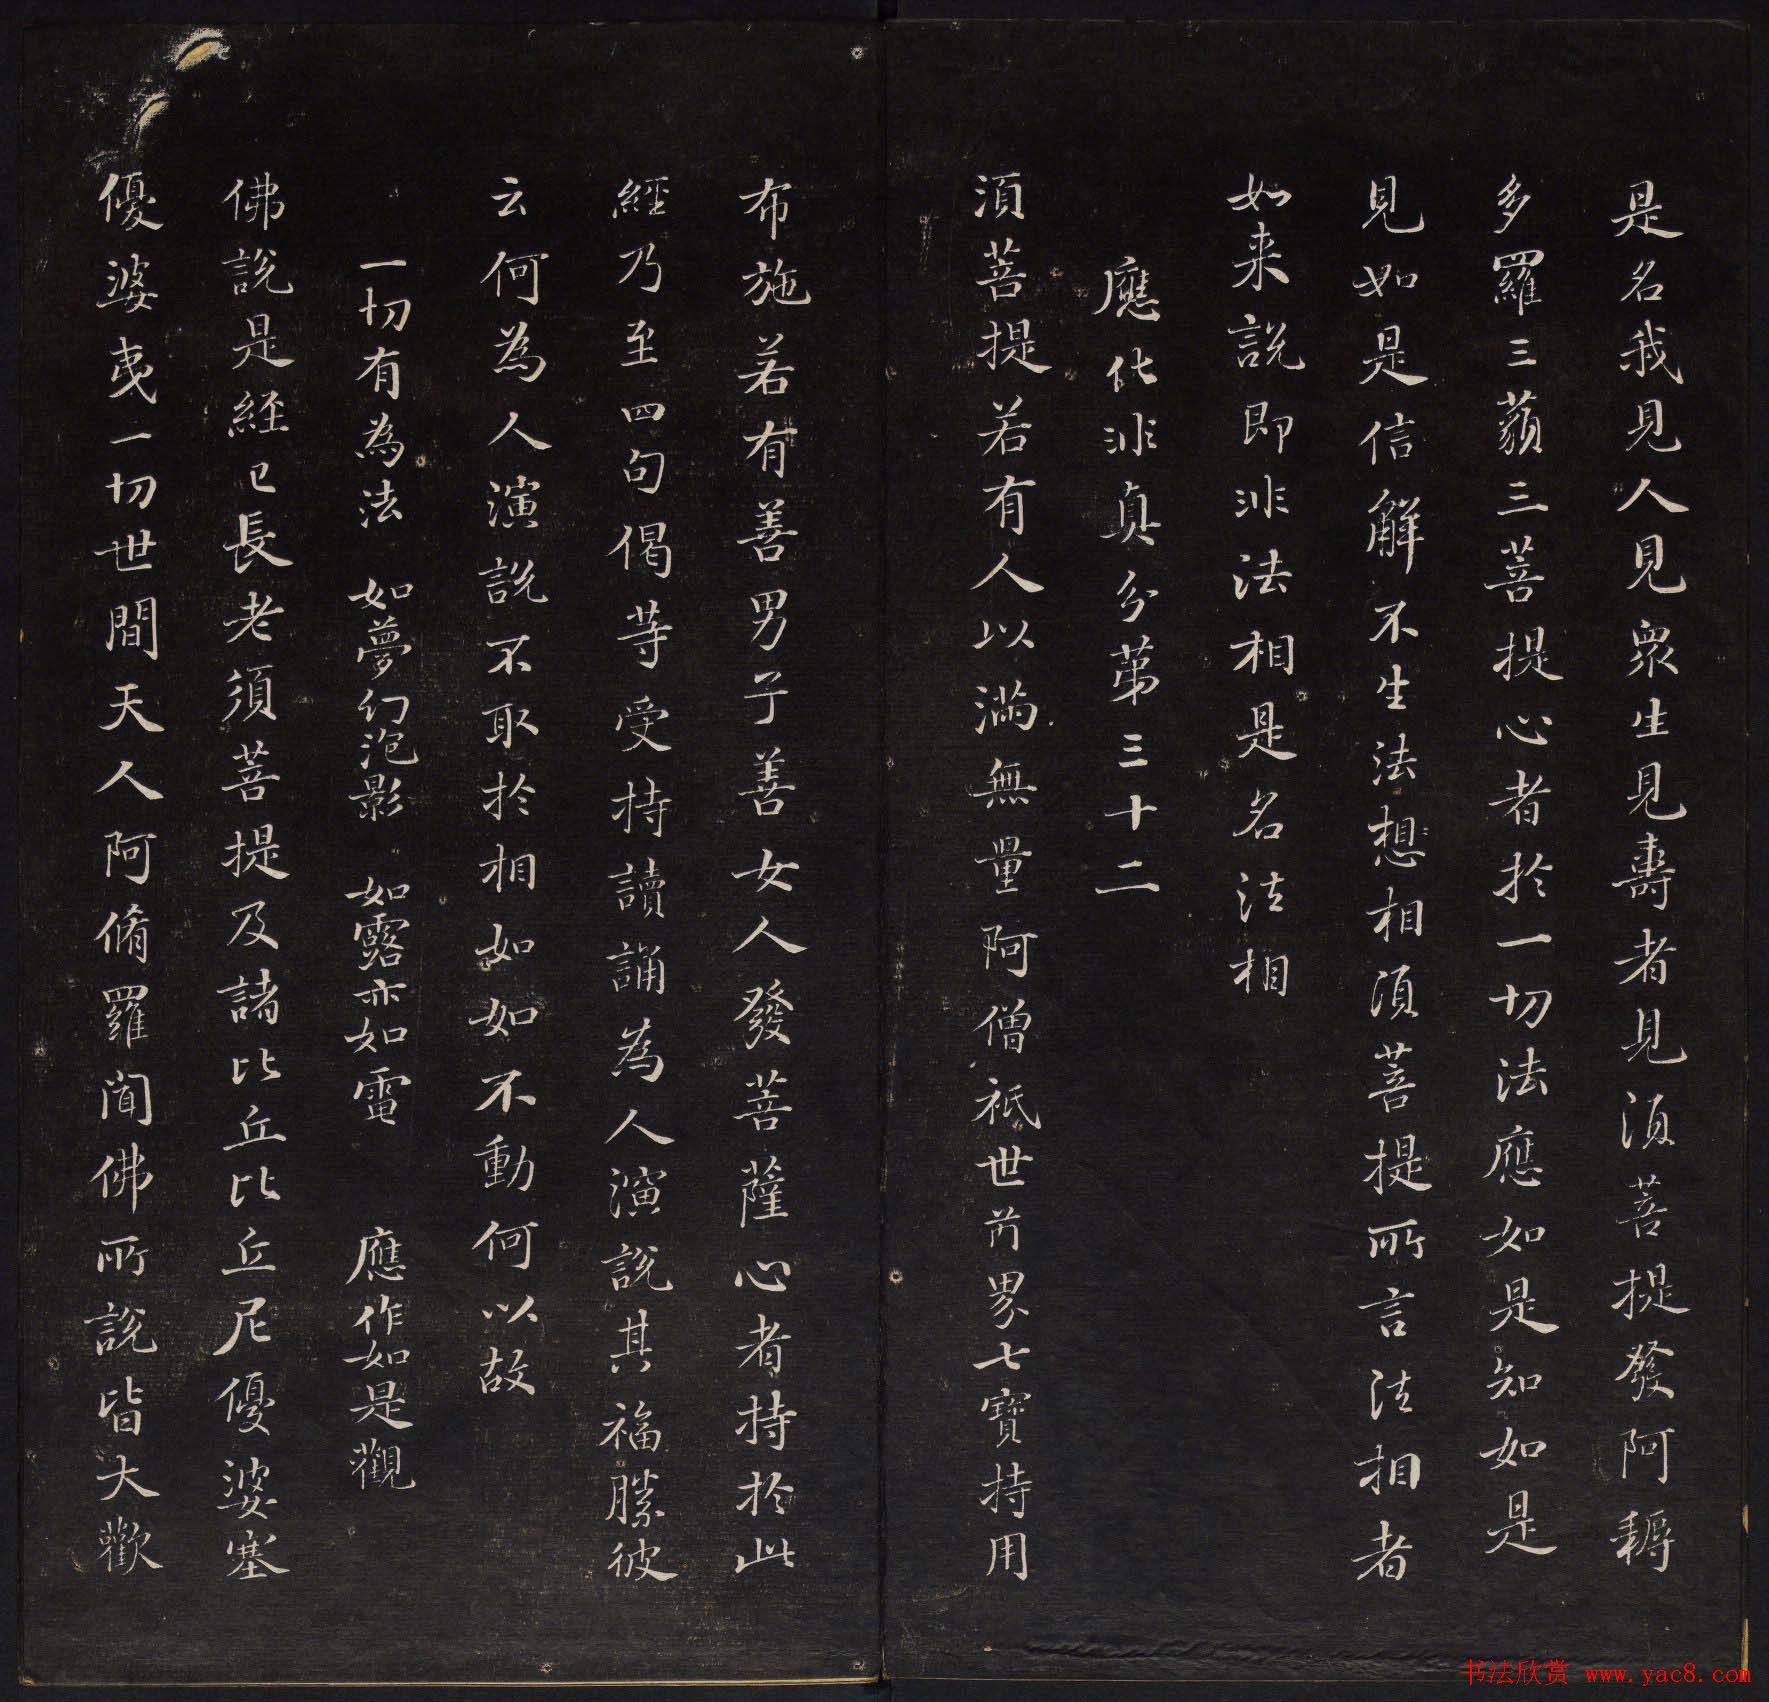 是名我見人見衆生見壽者見須菩提發阿耨
多羅三藐三菩提心者於一切法應如是知如是
見如是信解不生法想相須菩提所言法相者
如来說即非法相是名法相
應化非真分第三十二
須菩提若有人以滿無量阿僧祇世界七寶持用
布施若有善男子善女人發菩薩心者持於此
經乃至四句偈等受持讀誦為人演說其福勝彼
云何為人演說不取於相如如不動何以故
一切有為法 如夢幻泡影 如露亦如電 應作如是觀
佛說是經已長老須菩提及諸比丘比丘尼優婆塞
優婆夷一切世間天人阿脩羅聞佛所說皆大歡
书法欣赏 www.yac8.com